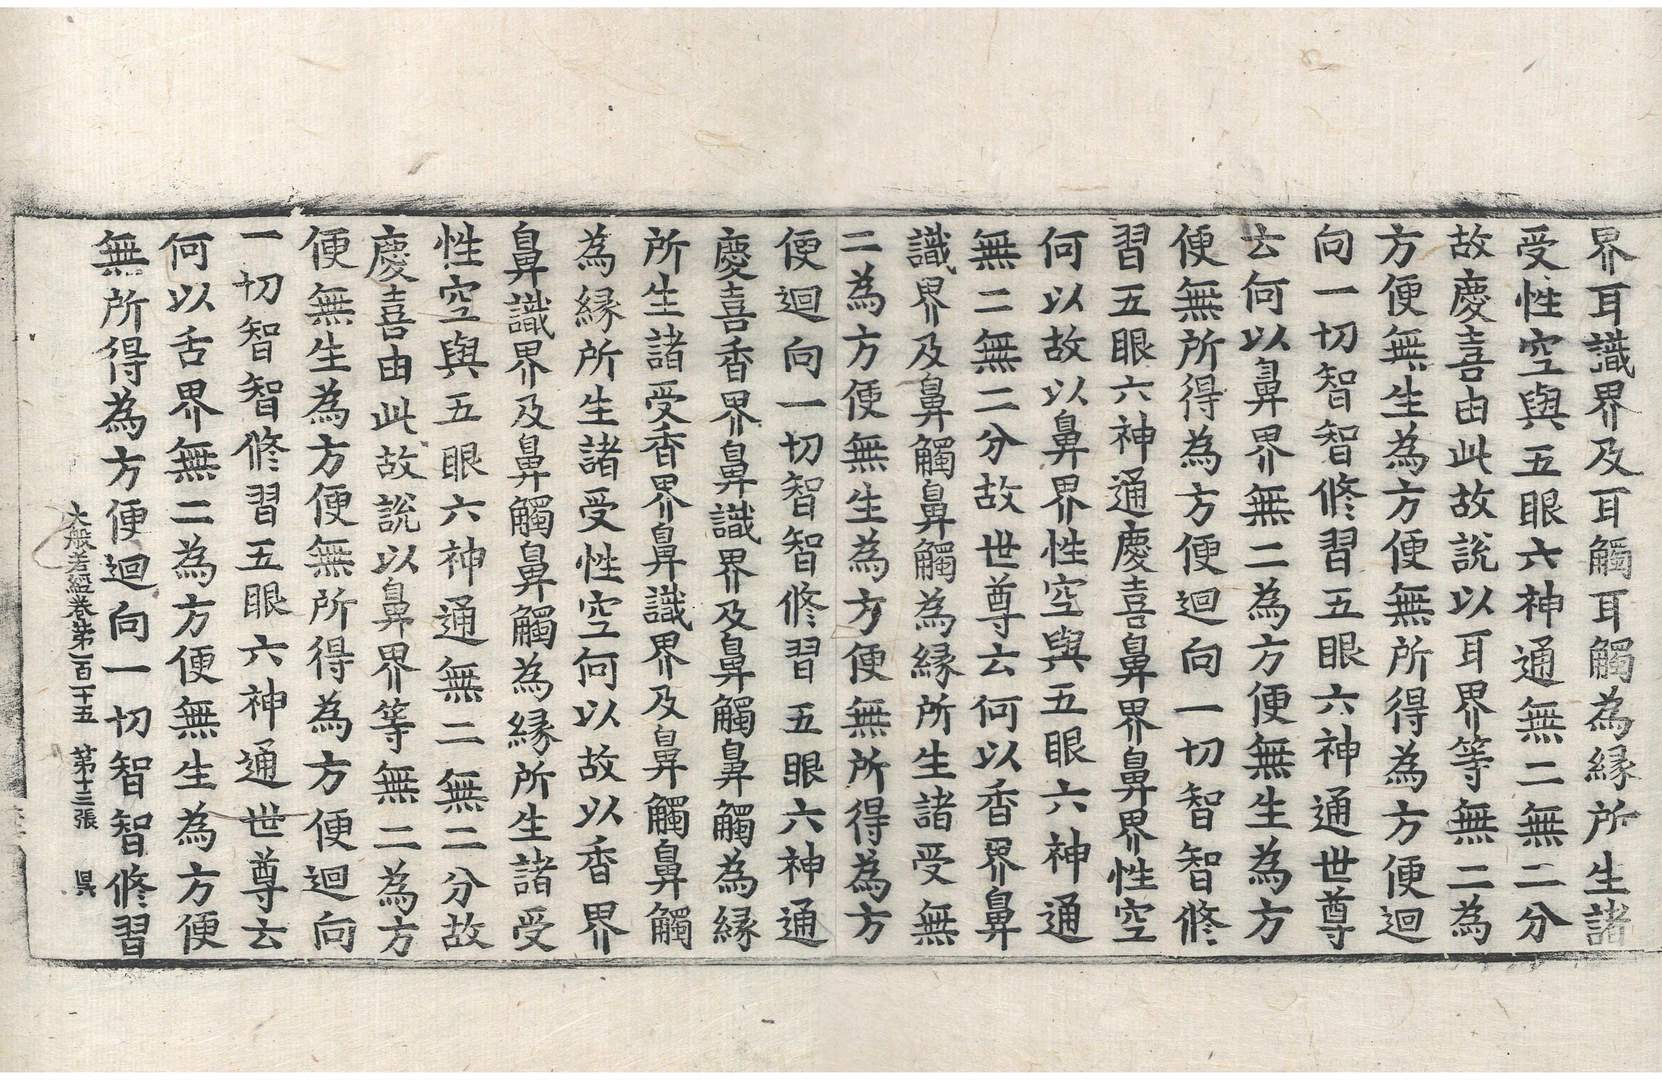 界耳識界及耳觸耳觸為緣所生諸
受性空與五眼六神通無二無二分
故慶喜由此故說以耳界等無二為
方便無生為方便無所得為方便迴
向一切智智修習五眼六神通世尊
云何以鼻界無二為方便無生為方
便無所得為方便迴向一切智智修
習五眼六神通慶喜鼻界鼻界性空
何以故以鼻界性空與五眼六神通
無二無二分故世尊云何以香界鼻
識界及鼻觸鼻觸為緣所生諸受無
二為方便無生為方便無所得為方
便迴向一切智智修習五眼六神通
慶喜香界鼻識界及鼻觸鼻觸為緣
所生諸受香界鼻識界及鼻觸鼻觸
為緣所生諸受性空何以故以香界
鼻識界及鼻觸鼻觸為緣所生諸受
性空與五眼六神通無二無二分故
慶喜由此故說以鼻界等無二為方
便無生為方便無所得為方便迴向
一切智智修習五眼六神通世尊云
何以舌界無二為方便無生為方便
無所得為方便迴向一切智智修習
大般若經卷第一百一十五 第十三張 昃